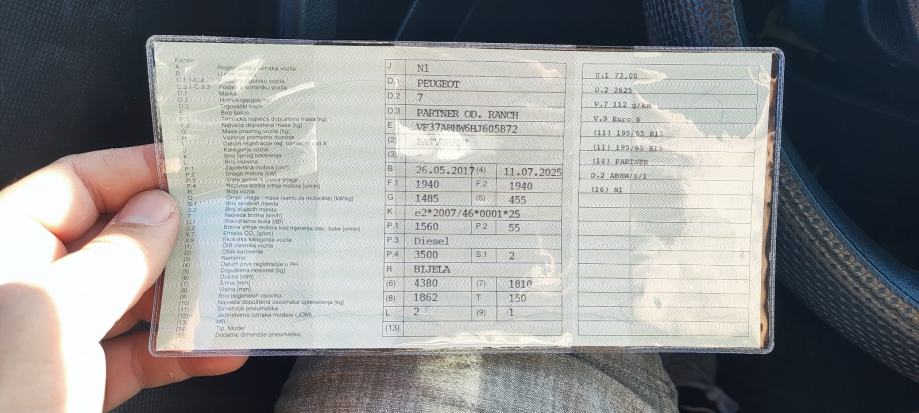 Kazalo
A Registarska oznaka vozila
D.1 Marka
D.3 Trgovački naziv
E Broj šasije
F.1 Tehnička najveća dopuštena masa [kg]
F.2 Najveća dopuštena masa [kg]
G Masa praznog vozila [kg]
H Važenje prometne dozvole
J Kategorija vozila
K Broj tipnog odobrenja
L Broj osovina
P.1 Zapremina motora [cm³]
P.2 Snaga motora [kW]
P.3 Vrsta goriva ili izvora snage
P.4 Nazivna brzina vrtnje motora [o/min]
R Boja vozila
Q Omjer snage i mase (samo za motocikle) [kW/kg]
S.1 Broj sjedećih mjesta
S.2 Broj stajaćih mjesta
T Najveća brzina [km/h]
U.1 Stacionarna buka [dB]
U.2 Brzina vrtnje motora kod mjerenja stac. buke [o/min]
V.7 Emisija CO₂ [g/km]
V.9 Ekološka kategorija vozila
(2) Oblik karoserije
(3) Namjena
(4) Datum prve registracije u RH
(5) Dopuštena nosivost [kg]
(6) Dužina [mm]
(7) Širina [mm]
(8) Visina [mm]
(9) Broj pogonskih osovina
(10) Najveća dopuštena osovinska opterećenja [kg]
(11) Dimenzije pneumatika
(12) Jedinstvena oznaka modela (JOM)
(13) MB
(14) Tip, Model
(15) Dodatne dimenzije pneumatika
J N1
D.1 PEUGEOT
D.2 7
D.3 PARTNER OD. RANCH
E VF37ABHW6HJ605872
(2)
(3) -
B 26.05.2017 (4) 11.07.2025
F.1 1940 F.2 1940
G 1485 (5) 455
K e2*2007/46*0001*25
P.1 1560 P.2 55
P.3 Diesel
P.4 3500 S.1 2
R BIJELA
(6) 4380 (7) 1810
(8) 1862 T 150
L 2 (9) 1
(13)
U.1 73.00
U.2 2625
V.7 112 g/km
V.9 Euro 6
(11) 195/65 R15
(11) 195/65 R15
(14) PARTNER
D.2 ABHW/8/1
(16) N1